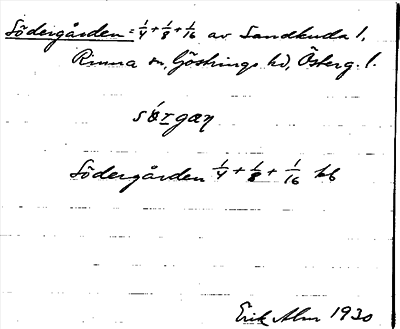 Södergården = 1/4 + 1/8 + 1/16 av Sandkuda 1,
Rinna sn, Göstrings hd, Österg. l.
sǿrgaɳ
Södergården 1/4 + 1/8 + 1/16 jb
Erik Alm 1930